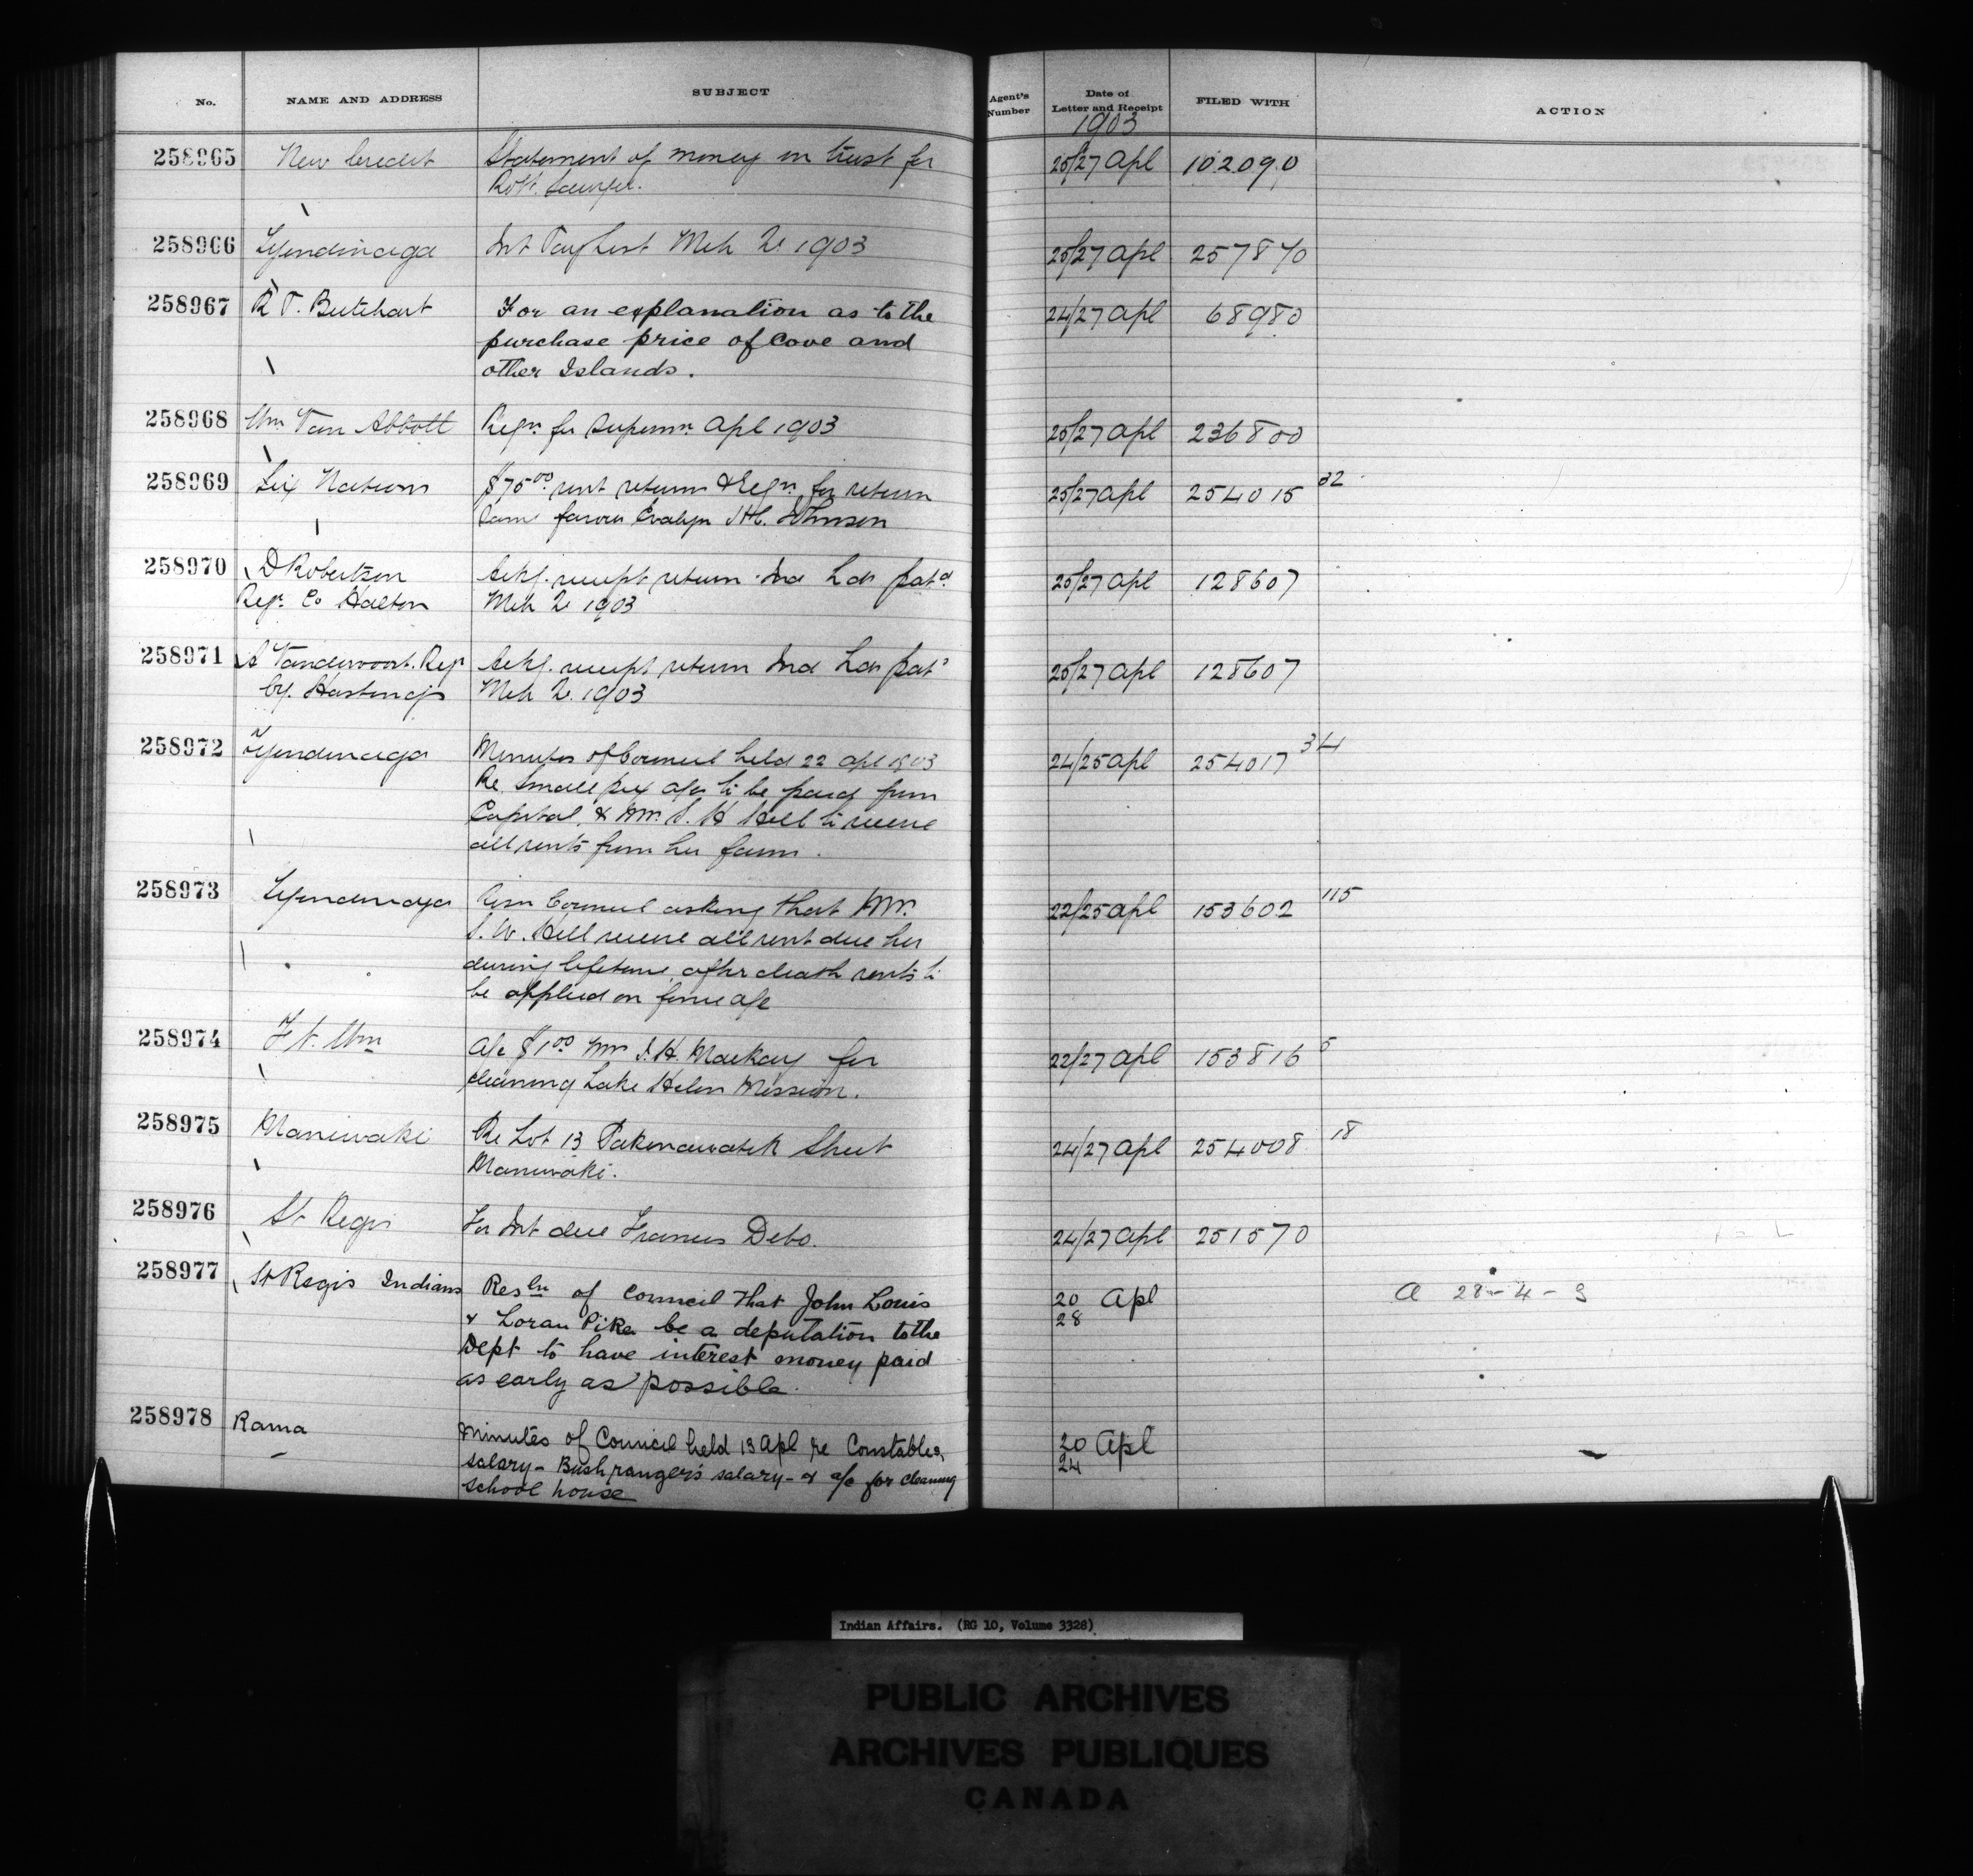 No. NAME AND ADDRESS SUBJECT Agent's Number Date of Letter and Receipt FILED WITH ACTION
1903
258965 New Credit Statement of money in trust for 25/27 Apl 102090
Robt.
258966 Tyendinaga Int Pay List Mch 1903 25/27 Apl 257870
258967 R T. Butchart For an explanation as to the 24/27 Apl 68980
purchase price of Cove and
other Islands.
258968 Wm Van Abbott Reqn for Supermn Apl 1903 25/27 Apl 236800
258969 Six Nations $75.00 rent return & Reqn for return 25/27 Apl 254015 32
same favour Evalyn H.C. Johnson
258970 D Robertson Ackg. receipt return Ind Lds patd 25/27 Apl 128607
Regr Co Halton Mch 1903
258971 A Vandervoort. Regr Ackg. receipt return Ind Lds patd 25/27 Apl 128607
Cy. Hastings Mch 1903
258972 Tyendinaga Minutes of Council held 22 Apl 1903 24/25 Apl 254017 34
Re Small pox a/cs to be paid from
Capital, & Mrs. S. H Hill to receive
all rents from her farm.
258973 Tyendinaga Resn Council asking that Mrs. 22/25 Apl 153602 115
S. W. Hill receive all rent due her
during lifetime, after death rents to
be applied on fence a/c
258974 Ft. Wm A/c $1.00 Mrs J. H. Mackay for 22/27 Apl 153816 5
cleaning Lake Helen Mission.
258975 Maniwaki Re Lot 13 Pakinawatik Street 24/27 Apl 254008 18
Maniwaki.
258976 St Regis For Int due Francis Debo. 24/27 Apl 251570
258977 St Regis Indians Resln of Council that John Louis 20/28 Apl a 28-4-3
& Loran Pike be a deputation to the
Dept to have interest money paid
as early as possible.
258978 Rama Minutes of Council held 13 Apl re Constables 20/24 Apl
salary - Bush ranger's salary - & a/c for cleaning
school house
Indian Affairs. (RG 10, Volume 3328)
PUBLIC ARCHIVES
ARCHIVES PUBLIQUES
CANADA